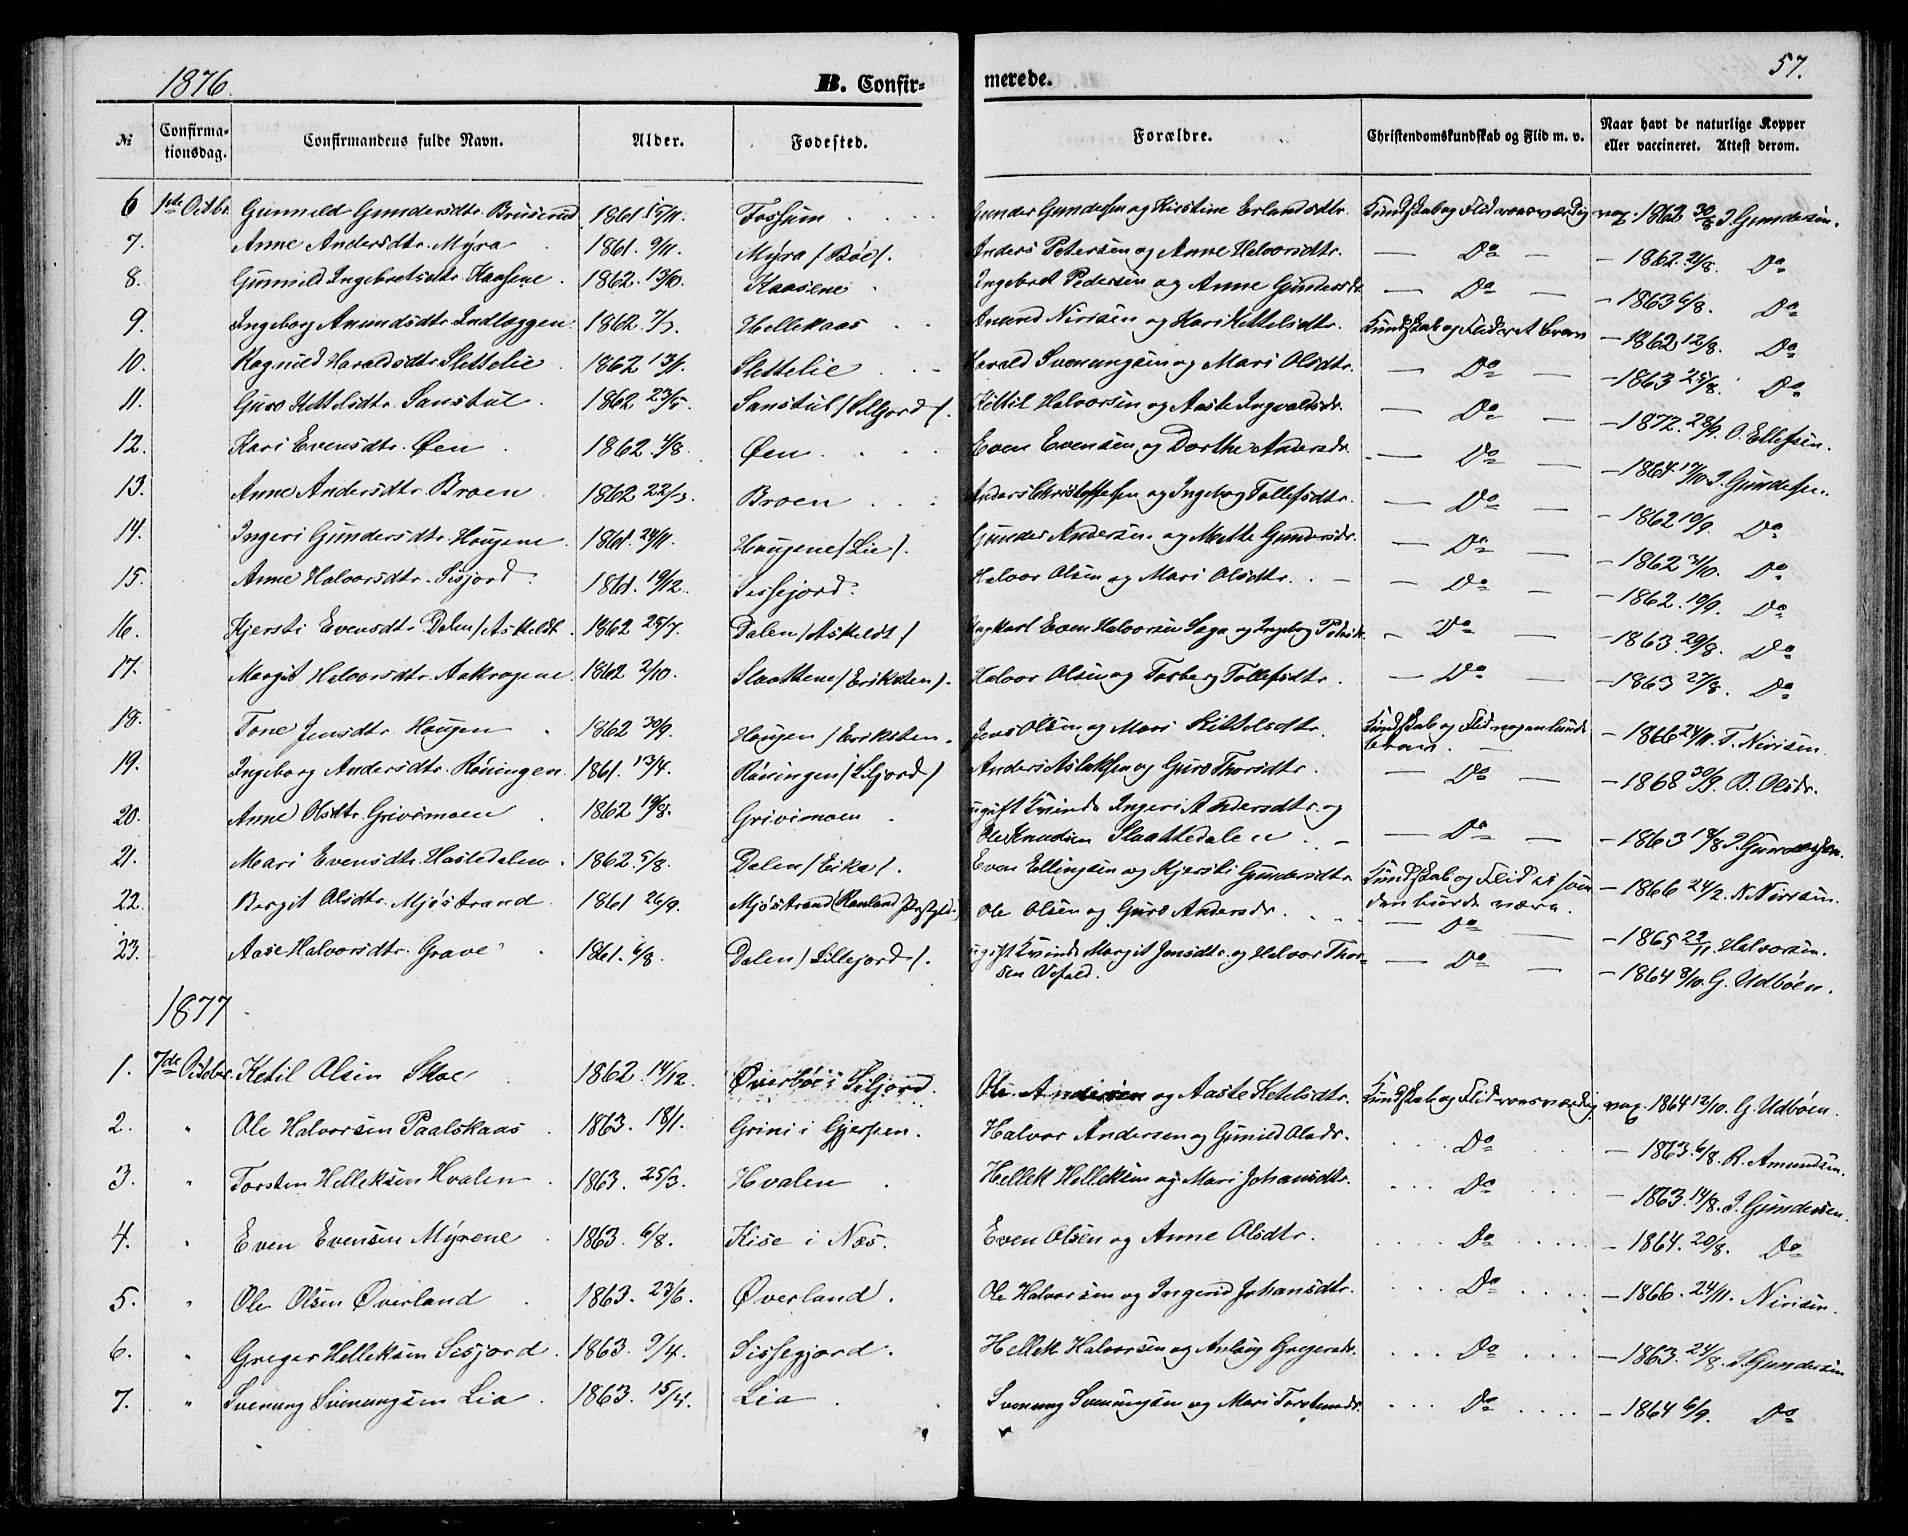 1876. B. Confirmerede. 57.
№ Confirmationsdag. Confirmandens fulde Navn. Alder. Fødested. Forældre. Christendomskundskab og Flid m. v. Naar havt de naturlige Kopper eller vaccineret. Attest derom.
6 1ste Octbr. Gunnild Gundersdtr. Bruserud 1861 17/11. Fossum Gunder Gundersen og Kirstine Erlandsdtr. Kundskab og Flid roesværdig vax. 1862 30/8 I. Gundersen.
7. Anne Andersdtr. Myra 1861. 9/11. Myra (Böe). Anders Petersen og Anne Halvorsdtr. — Do — — 1862. 21/8. Do
8. Gunnild Ingebretsdtr. Kaasene 1862. 13/10. Kaasene Ingebret Pedersen og Anne Gundersdtr. — Do — — 1863 6/8. Do
9. Ingeborg Amundsdtr. Indlæggen 1862. 7/3. Hellekaas Amund Nirisen og Kari Kettelsdtr. Kundskab og Flid ret brav — 1862 12/8. Do
10. Ragnild Haraldsdtr. Slettelie 1862 13/1. Slettelie Harald Svenungsen og Mari Olsdtr. — Do — — 1863 25/8. Do
11. Guro Kettelsdtr. Sanstul 1862 23/5. Sanstul (Silljord). Kittil Halvorsen og Aaste Ingvaldsdr. — Do — — 1872. 28/9. O. Ellefsen.
12. Kari Evensdtr. Øen 1862 4/8. Øen Even Evensen og Dorthe Andersdr. — Do — — 1864 17/10 I. Gundersen.
13. Anne Andersdtr. Broen 1862 22/3. Broen Anders Christoffersen og Ingeborg Tollefsdtr. — Do — — 1862 10/9. Do
14. Ingeri Gundersdtr. Hougene 1861. 24/11. Hougene (Lie). Gunder Andersen og Mette Gundersdr. — Do — — 1862 31/10. Do
15. Anne Halvorsdtr. Sisjord 1861. 19/12. Sissejord. Halvor Olsen og Mari Olsdtr. — Do — — 1862. 10/9. Do
16. Kjersti Evensdtr. Dalen (Askeldt. 1862 25/7. Dalen (Askeldt) Ungkarl Even Halvorsen Saga og Ingeborg — Do — — 1863. 29/8. Do
17. Margit Halvorsdtr. Aakrogene 1862 2/10. Slaattene (Eriksten). Halvor Olsen og Torberg Tollefsdtr. — Do — — 1863 27/8. Do
18. Tone Jensdtr. Hougen 1862 30/9. Hougen (Eriksten. Jens Olsen og Mari Kittelsdtr. Kundskab og Flid nogenlunde brav. — 1866 24/11. T. Nirisen
19. Ingeborg Andersdtr. Röningen 1861. 13/4. Röningen (Siljord) Anders Aslaksen og Guro Thorsdtr. — Do — — 1868 30/9. B. Olsdr.
20. Anne Olsdtr. Grivimoen 1862 19/5. Grivimoen ugift Kvinde Ingeri Andersdtr. og
Ole Knudsen Slaattedalen — Do — — 1863 18/8 I. Gundersen.
21. Mari Evensdtr. Hastedalen 1862. 5/8. Dalen (Eika). Even Ellingsen og Kjersti Gundersdtr. Kundskab og Flid ei som den burde være. — 1866 24/2. N. Nirisen.
22. Bergit Olsdtr. Mjöstrand 1861 26/9. Mjöstrand (Rauland Præstgjld.) Ole Olsen og Guro Andersdr. — Do — — 1865 22/11. Halvorsen.
23. Aase Halvorsdtr. Grave 1861. 6/8. Dalen) Sillejord). ugift Kvinde Margit Jonsdtr. og Halvor Thorsen — Do — — 1864 8/10. G. Udböen.
1877
1. 7de October. Ketil Olsen Skoe 1862. 14/12. Øverböe i Siljord. Ole Andersen og Aaste Ketelsdtr. Kundskab og Flid roesværdig vax. 1864 12/10. G. Udböen.
2. " Ole Halvorsen Paalskaas 1863. 18/1. Grini i Gjerpen. Halvor Andersen og Gunild Olsdr. Do — 1863. 6/8. R. Amundsen.
3. " Torsten Helleksen Hvalen 1863. 25/3. Hvalen Hellek Helleksen og Mari Johansdtr. Do — 1863. 14/8. I. Gundersen.
4. " Even Evensen Myrene 1863. 6/8. Kise i Næs. Even Olsen og Anne Olsdtr. Do — 1864. 20/8. Do
5. " Ole Olsen Øverland 1863. 23/6. Øverland. Ole Halvorsen og Ingerid Johansdtr. Do — 1866. 24/11. Nirisen.
6. " Greger Helleksen Sisjord 1863. 9/4. Sissegjord. Hellek Halvorsen og Anlaug Gregersdr. Do — 1863. 24/8. I. Gundersen
7. " Svenung Svenungsen Lia 1863. 15/4. Lia Svenung Svenungsen og Mari Torstensdr. Do — 1864 6/9. Do